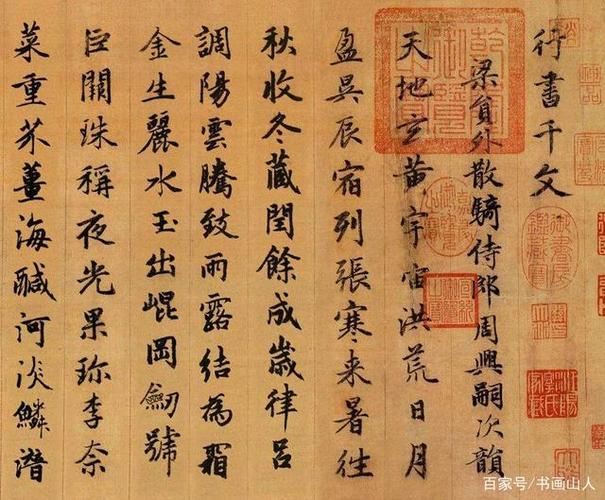 行書千文
梁員外散騎侍郎周興嗣次韻
天地玄黃宇宙洪荒日月
盈昃辰宿列張寒来暑往
秋收冬藏閏餘成歲律呂
調陽雲騰致雨露結為霜
金生麗水玉出崐岡劒號
巨闕珠稱夜光果珎李柰
菜重芥薑海鹹河淡鱗潛
御書房鑑藏寶
百家号/书画山人